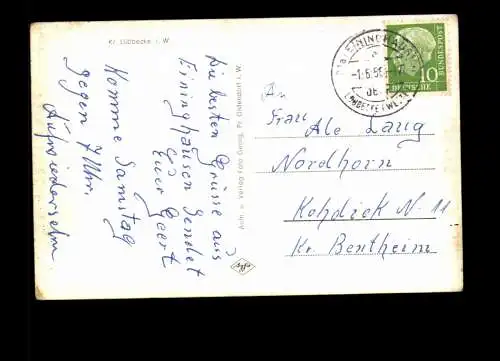 Kr. Lübbecke i. W.
Die besten Grüsse aus
Eininghausen sendet
Euer Geert
Komme Samstag
gegen 7 Uhr.
Aufwiedersehn
Aufn. u. Verlag Foto Georg, Pr. Oldendorf i. W.
Agfa
(21a) EININGHAUSEN
-1.6.55
LÜBBECKE (WESTF)
10
DEUTSCHE
BUNDESPOST
An
Frau Ale Lang
Nordhorn
Kohdiek N 11
Kr. Bentheim